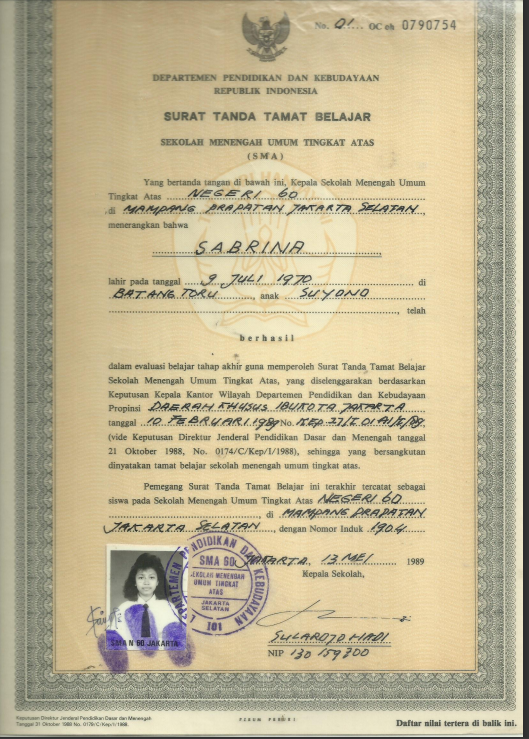 No. 01 OC oh 0790754
DEPARTEMEN PENDIDIKAN DAN KEBUDAYAAN
REPUBLIK INDONESIA
SURAT TANDA TAMAT BELAJAR
SEKOLAH MENENGAH UMUM TINGKAT ATAS
(SMA)
Yang bertanda tangan di bawah ini, Kepala Sekolah Menengah Umum
Tingkat Atas NEGERI 60
di MAMPANG PRAPATAN JAKARTA SELATAN,
menerangkan bahwa
SABRINA
lahir pada tanggal 9 JULI 1970 di
BATANG TORU, anak SUYONO
, telah
berhasil
dalam evaluasi belajar tahap akhir guna memperoleh Surat Tanda Tamat Belajar
Sekolah Menengah Umum Tingkat Atas, yang diselenggarakan berdasarkan
Keputusan Kepala Kantor Wilayah Departemen Pendidikan dan Kebudayaan
Propinsi DAERAH KHUSUS IBUKOTA JAKARTA
tanggal 10 FEBRUARI 1989 No.
(vide Keputusan Direktur Jenderal Pendidikan Dasar dan Menengah tanggal
21 Oktober 1988, No. 0174/C/Kep/I/1988), sehingga yang bersangkutan
dinyatakan tamat belajar sekolah menengah umum tingkat atas.
Pemegang Surat Tanda Tamat Belajar ini terakhir tercatat sebagai
siswa pada Sekolah Menengah Umum Tingkat Atas NEGERI 60
, di MAMPANG PRAPATAN
JAKARTA SELATAN, dengan Nomor Induk 1904
JAKARTA, 13 MEI 1989
Kepala Sekolah,
DEPARTEMEN PENDIKAN DAN KEBUDAYAAN
SMA 60
SEKOLAH MENENGAH
UMUM TINGKAT
ATAS
JAKARTA
SELATAN
101
SMA N 60 JAKARTA
SULARDJO HADI
NIP 130 159300
Keputusan Direktur Jenderal Pendidikan Dasar dan Menengah
Tanggal 31 Oktober 1988 No. 0179/C/Kep/I/1988.
PERUM PERURI
Daftar nilai tertera di balik ini.